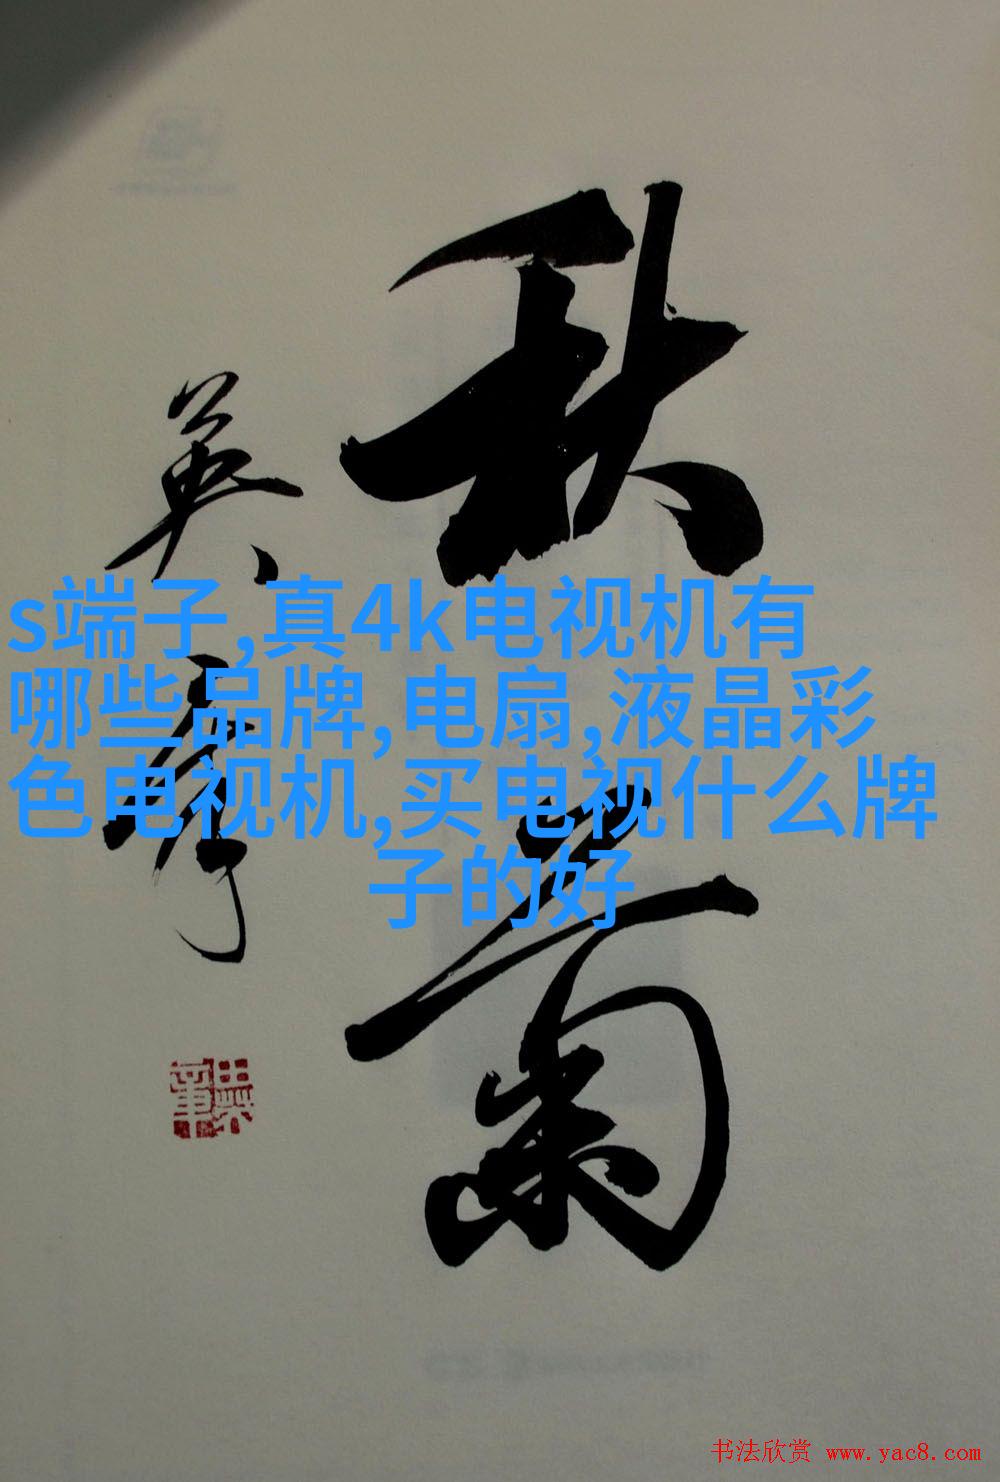 秋菊
英章
s端子,真4k电视机有
哪些品牌,电扇,液晶彩
色电视机,买电视什么牌
子的好
书法欣赏 www.yac8.com